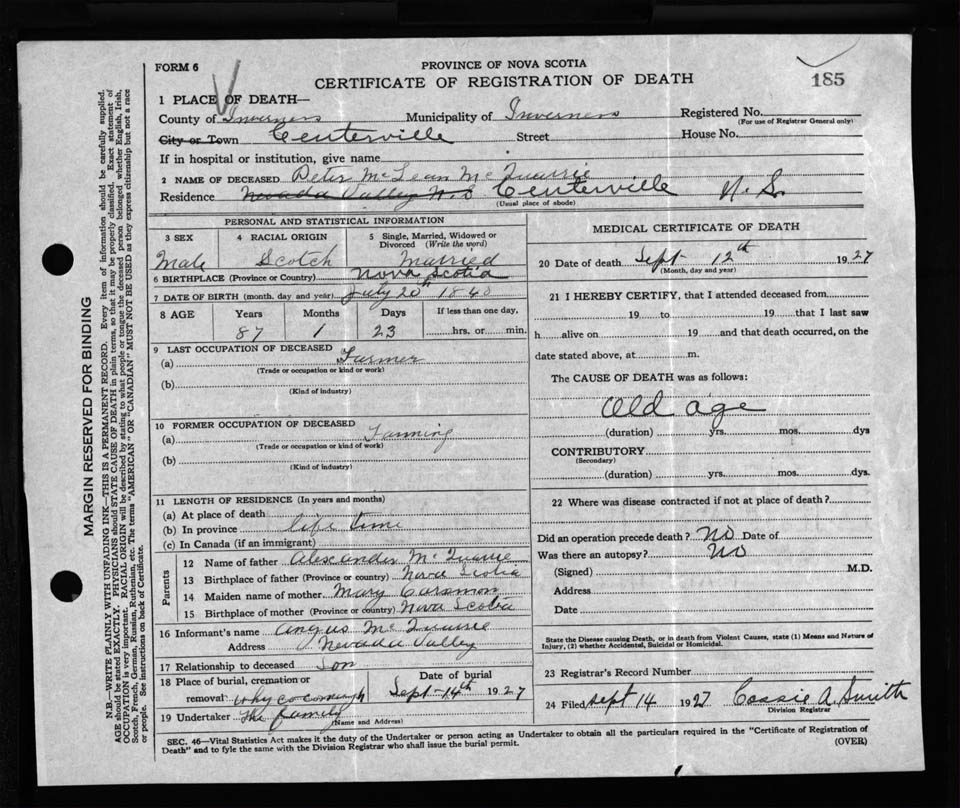 FORM 6
PROVINCE OF NOVA SCOTIA
CERTIFICATE OF REGISTRATION OF DEATH
185
1 PLACE OF DEATH—
County of Inverness Municipality of Inverness Registered No.
(For use of Registrar General only)
City or Town Centerville Street House No.
If in hospital or institution, give name
2 NAME OF DECEASED Peter McLean McQuarrie
Residence Nevada Valley N.S Centerville N.S.
(Usual place of abode)
PERSONAL AND STATISTICAL INFORMATION
3 SEX 4 RACIAL ORIGIN 5 Single, Married, Widowed or Divorced (Write the word)
Male Scotch Married
6 BIRTHPLACE (Province or Country) Nova Scotia
7 DATE OF BIRTH (month, day and year) July 20th 1840
8 AGE Years Months Days If less than one day,
87 1 23 hrs. or min.
9 LAST OCCUPATION OF DECEASED
(a) Farmer
(Trade or occupation or kind or work)
(b)
(Kind of industry)
10 FORMER OCCUPATION OF DECEASED
(a) Farming
(Trade or occupation or kind or work)
(b)
(Kind of industry)
11 LENGTH OF RESIDENCE (In years and months)
(a) At place of death
(b) In province life time
(c) In Canada (if an immigrant)
Parents
12 Name of father Alexander McQuarrie
13 Birthplace of father (Province or country) Nova Scotia
14 Maiden name of mother Mary
15 Birthplace of mother (Province or country) Nova Scotia
16 Informant's name Angus McQuarrie
Address Nevada Valley
17 Relationship to deceased Son
18 Place of burial, cremation or Date of burial
removal whycocomagh Sept-14th 1927
19 Undertaker The family
(Name and Address)
MEDICAL CERTIFICATE OF DEATH
20 Date of death Sept 12th 1927
(Month, day and year)
21 I HEREBY CERTIFY, that I attended deceased from
19 to 19 that I last saw
h alive on 19 and that death occurred, on the
date stated above, at m.
The CAUSE OF DEATH was as follows:
Old age
(duration) yrs. mos. dys
CONTRIBUTORY
(Secondary)
(duration) yrs. mos. dys.
22 Where was disease contracted if not at place of death?
Did an operation precede death? No Date of
Was there an autopsy? No
(Signed) M.D.
Address
Date
State the Disease causing Death, or in death from Violent Causes, state (1) Means and Nature of
Injury, (2) whether Accidental, Suicidal or Homicidal.
23 Registrar's Record Number
24 Filed Sept 14 1927 Cassie A. Smith
Division Registrar
SEC. 46—Vital Statistics Act makes it the duty of the Undertaker or person acting as Undertaker to obtain all the particulars required in the "Certificate of Registration of
Death" and to fyle the same with the Division Registrar who shall issue the burial permit.
(OVER)
MARGIN RESERVED FOR BINDING
N.B.—WRITE PLAINLY WITH UNFADING INK—THIS IS A PERMANENT RECORD. Every item of information should be carefully supplied.
AGE should be stated EXACTLY. PHYSICIANS should STATE CAUSE OF DEATH in plain terms, so that it may be properly classified. Exact statement of
OCCUPATION is very important. RACIAL ORIGIN will be described by stating to what people or tongue the deceased person belonged whether English, Irish,
Scotch, French, German, Russian, Ruthenian, etc. The terms "AMERICAN" OR "CANADIAN" MUST NOT BE USED as they express citizenship but not a race
or people. See instructions on back of Certificate.